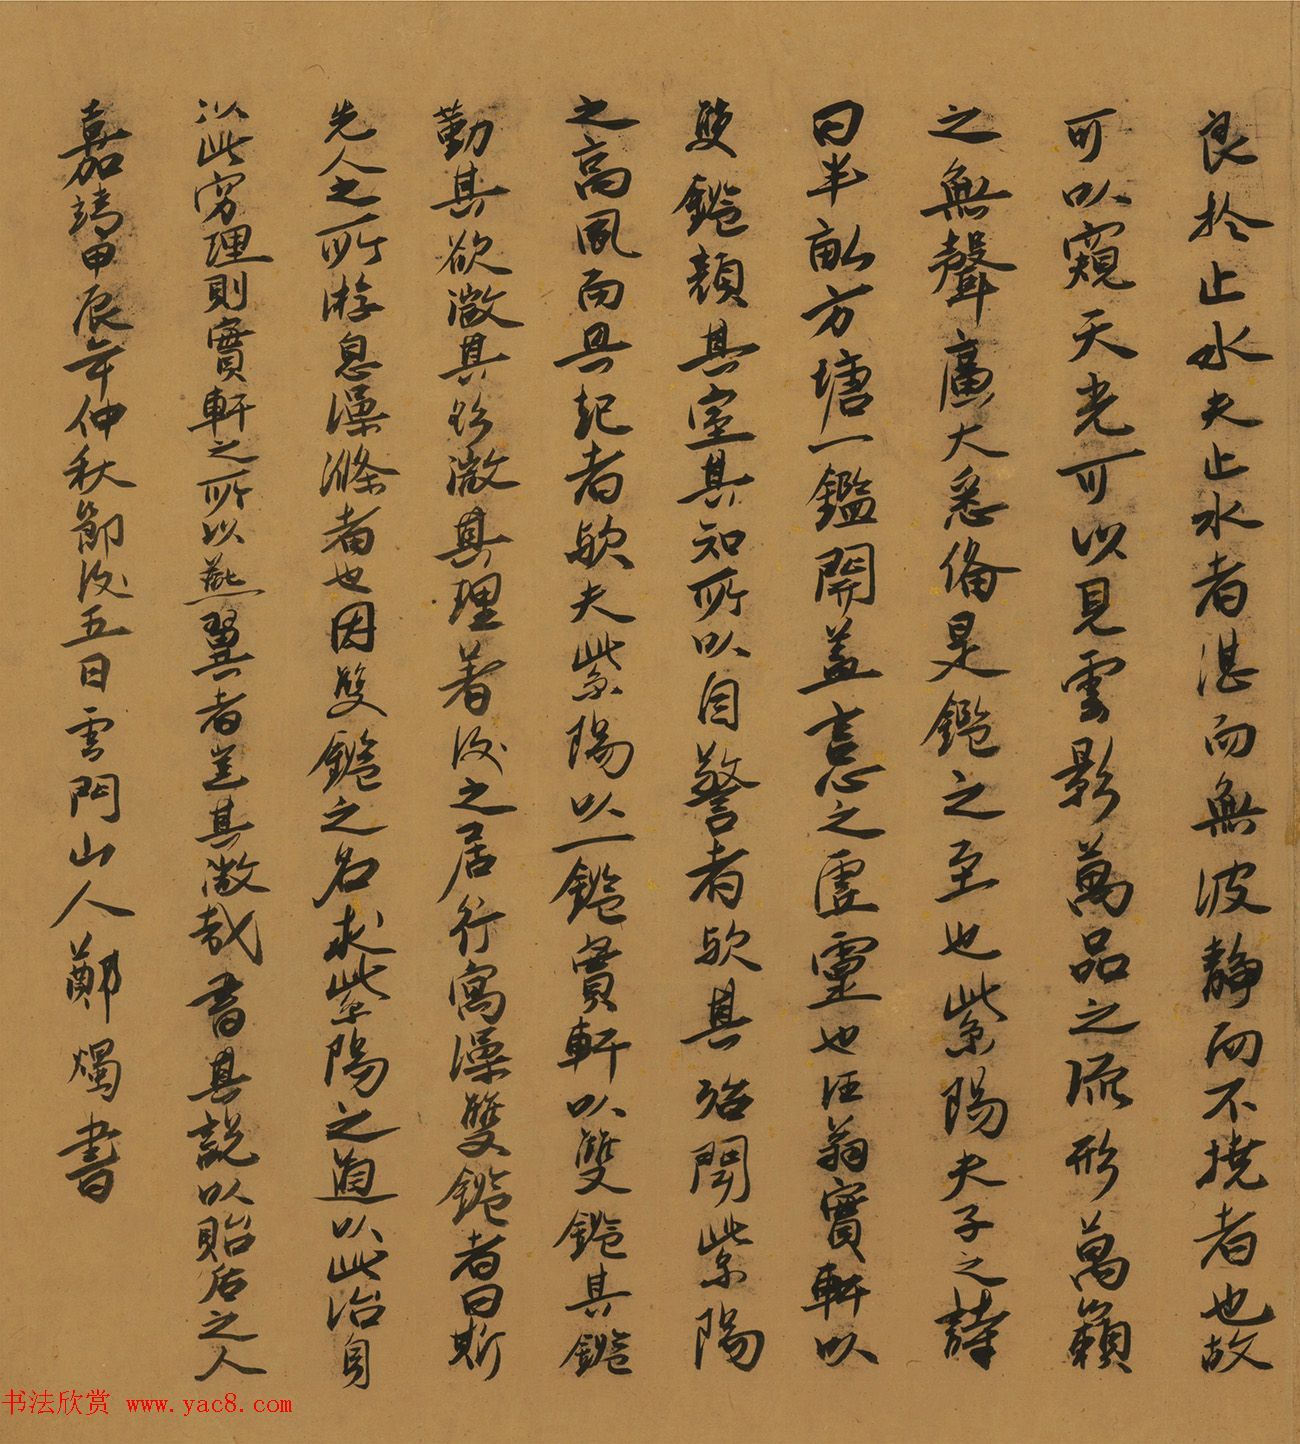 良於止水夫止水者湛而無波靜而不撓者也故
可以窺天光可以見雲影萬品之流形萬籟
之無聲廣大悉備是鑑之至也紫陽夫子之詩
曰半畝方塘一鑑開蓋言心之虛靈也汪翁實軒以
雙鑑顏其室其知所以自警者歟其殆聞紫陽
之高風而興起者歟夫紫陽以一鑑實軒以雙鑑其鑑
勤其欲微其欲微其理著後之居行寓澡雙鑑者曰斯
先人之所游息澡滌者也因雙鑑之名求紫陽之道以此治身
以此窮理則實軒之所以燕翼者豈其微哉書其說以貽後之人
嘉靖甲辰年仲秋節後五日雲門山人鄭燭書
书法欣赏 www.yac8.com